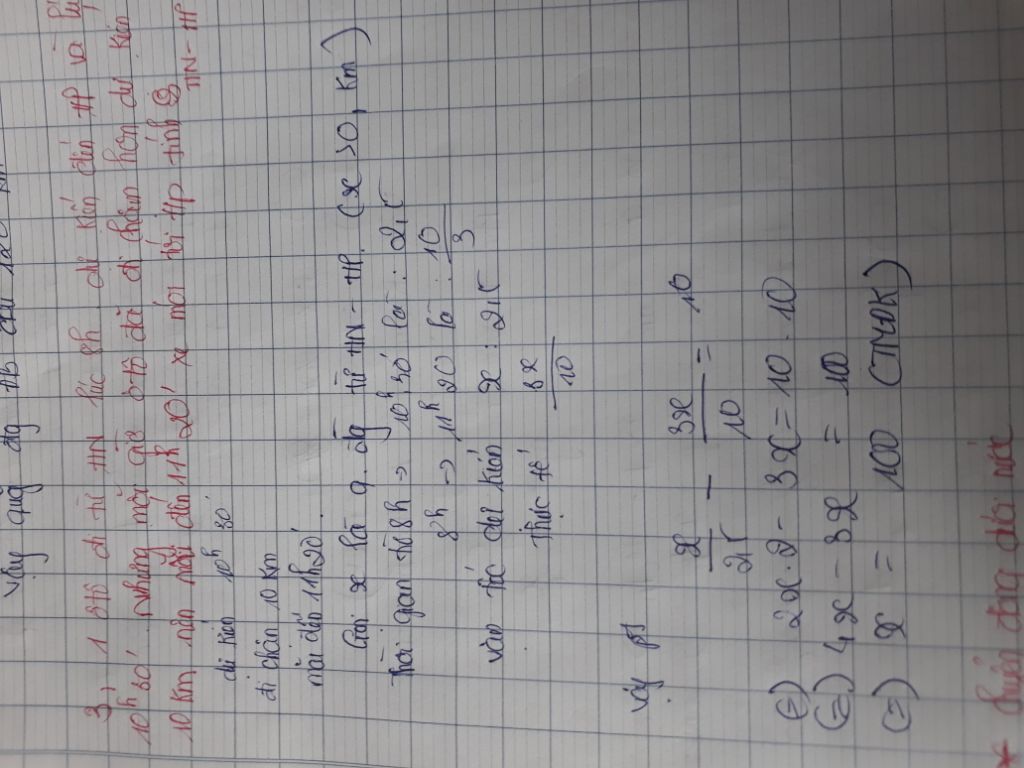 Vậy quãng đg AB dài 120 km
3, 1 ôtô đi từ HN lúc 8h dự kiến đến HP và lúc
10h 30'. Nhưng mỗi giờ ôtô đã đi chậm hơn dự kiến
10 km nên mãi đến 11h 20' xe mới tới HP tính S HN - HP
dự kiến 10h 30'
đi chậm 10 km
mãi đến 11h20'.
Gọi x là q. đg từ HN - HP. (x > 0, km)
Thời gian từ 8h → 10h 30' là : 2,5
8h → 11h 20 là : 10/3
vận tốc dự kiến x : 2,5
thực tế 3x/10
Vậy pt x/2,5 - 3x/10 = 10
(=) 2x.2 - 3x = 10 . 10
(=) 4x - 3x = 100
(=) x = 100 (TMĐK)
* chuyển động dòng nước